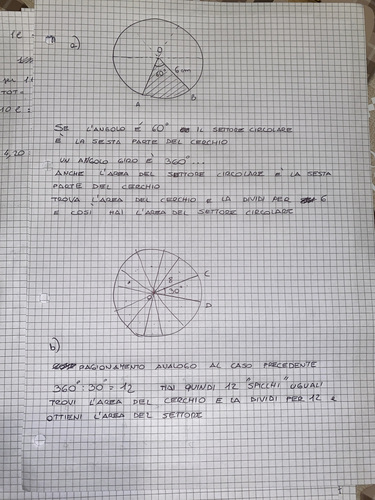 1 e
a)
O
60°
6 cm
A
B
TOT=
10 e =
4,20
SE L'ANGOLO È 60° IL SETTORE CIRCOLARE
È LA SESTA PARTE DEL CERCHIO
UN ANGOLO GIRO È 360°...
ANCHE L'AREA DEL SETTORE CIRCOLARE È LA SESTA
PARTE DEL CERCHIO
TROVA L'AREA DEL CERCHIO E LA DIVIDI PER 6
E COSÌ HAI L'AREA DEL SETTORE CIRCOLARE
8
C
30°
O
D
b)
RAGIONAMENTO ANALOGO AL CASO PRECEDENTE
360° : 30° = 12 HAI QUINDI 12 "SPICCHI" UGUALI
TROVI L'AREA DEL CERCHIO E LA DIVIDI PER 12 E
OTTIENI L'AREA DEL SETTORE